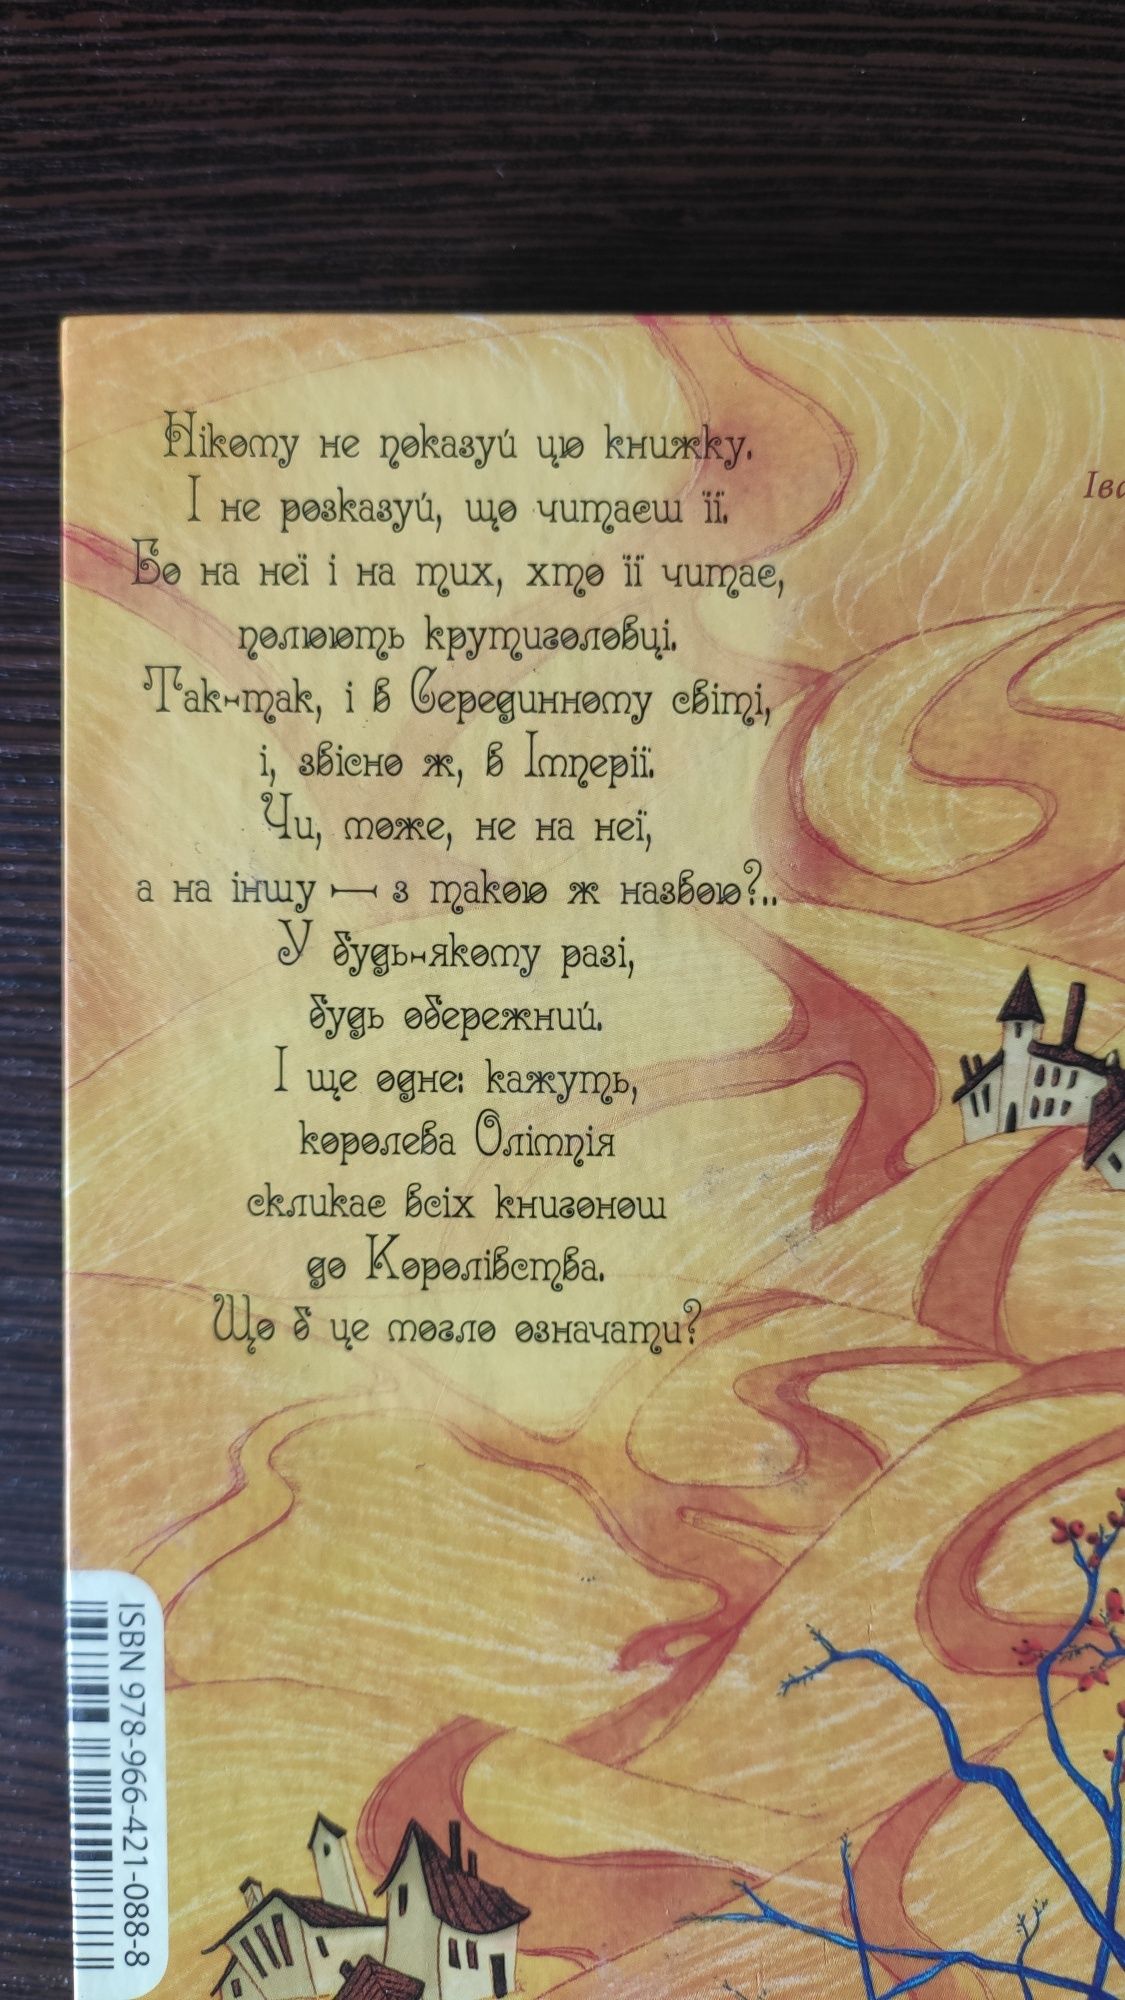 Нікому не показуй цю книжку.
І не розказуй, що читаєш її.
Бо на неї і на тих, хто її читає,
полюють крутиголовці.
Так-так, і в Серединному світі,
і, звісно ж, в Імперії.
Чи, може, не на неї,
а на іншу — з такою ж назвою?..
У будь-якому разі,
будь обережний.
І ще одне: кажуть,
королева Олімпія
скликає всіх книгонош
до Королівства.
Що б це могло означати?
Іва
ISBN 978-966-421-088-8